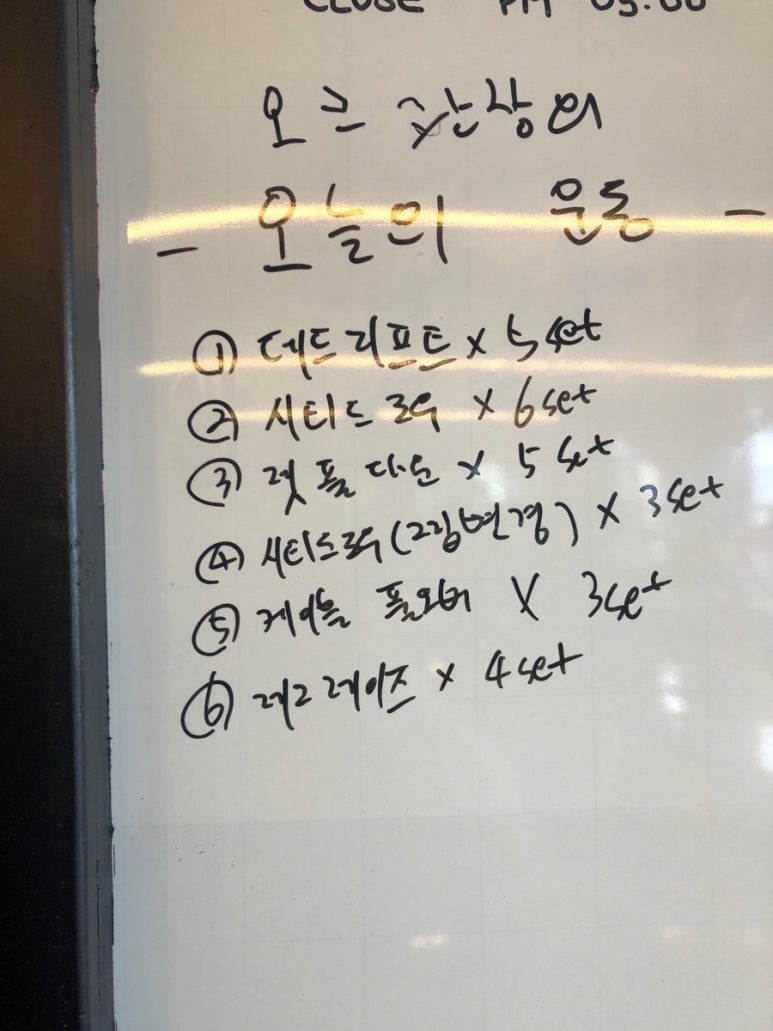 CLOSE PM 05:00
오른
- 오늘의 운동 -
① 데드리프트 x 5set
② 시티드 로우 x 6set
③ 렛풀다운 x 5set
④ 시티드로우(그립변경) x 3set
⑤ 케이블 풀오버 x 3set
⑥ 레그레이즈 x 4set